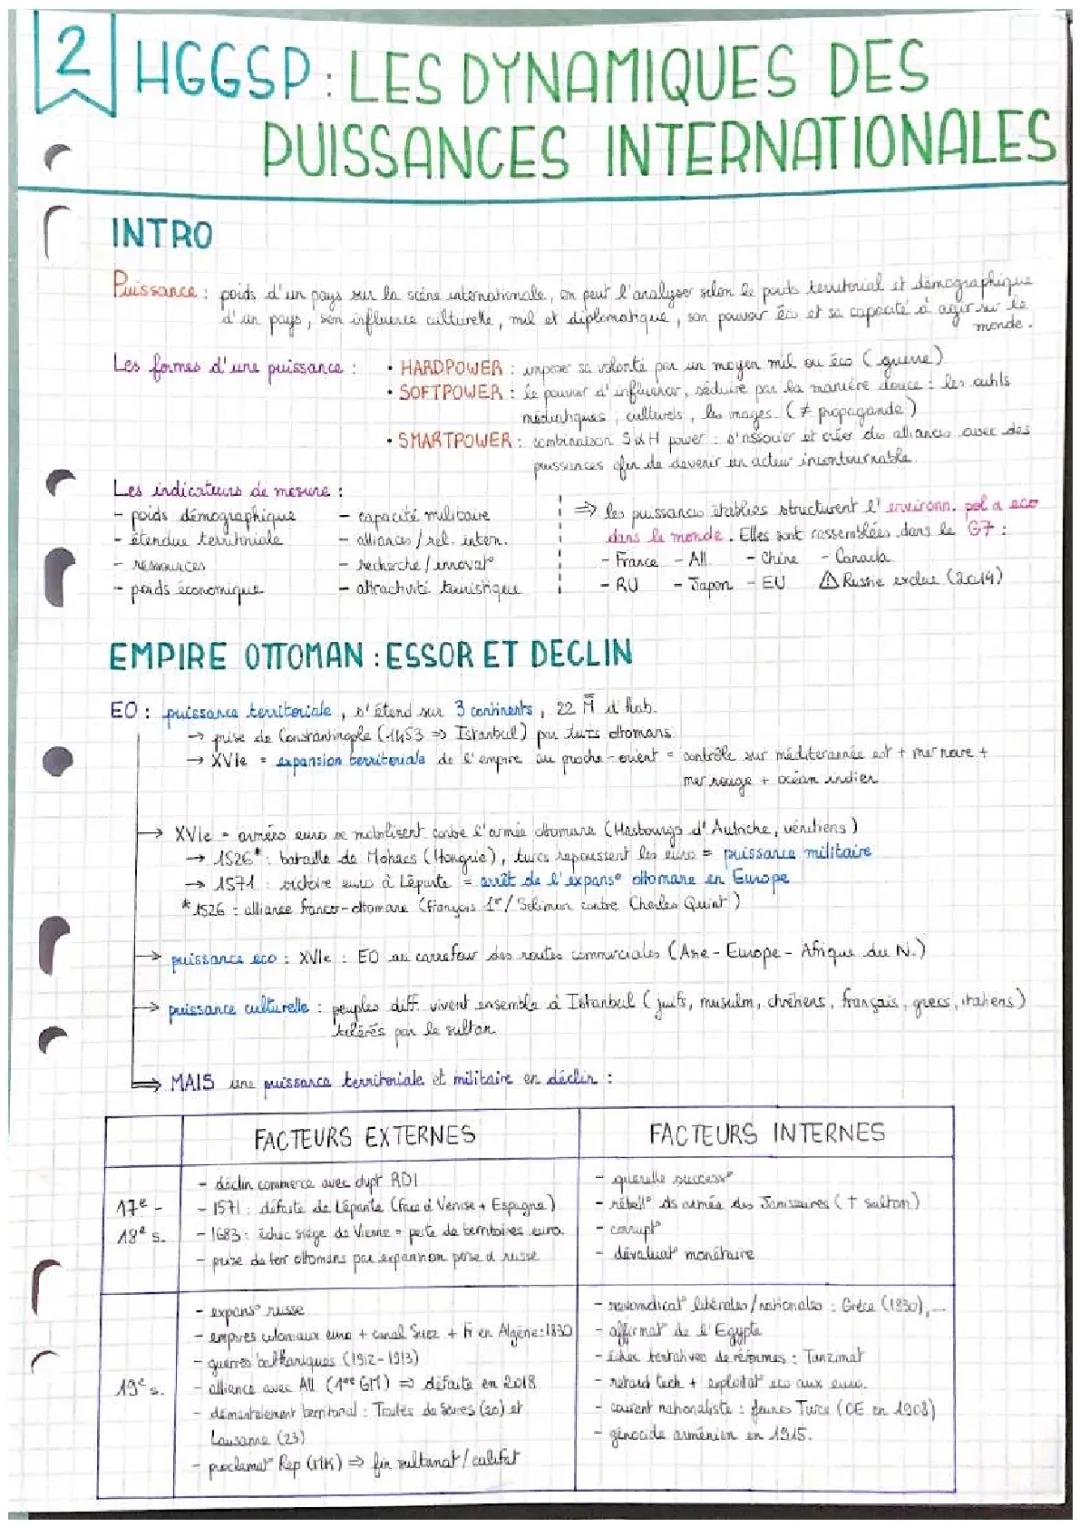 2 HGGSP : LES DYNAMIQUES DES
PUISSANCES INTERNATIONALES
INTRO
Puissance : poids d'un pays sur la scène internationale, on peut l'analyser selon le poids territorial et démographique
d'un pays, son influence culturelle, mil et diplomatique, son pouvoir éco et sa capacité à agir sur le
monde.
Les formes d'une puissance : • HARDPOWER : imposer sa volonté par un moyen mil ou éco (guerre)
• SOFTPOWER : le pouvoir d'influencer, séduire par la manière douce : les outils
médiatiques, culturels, les images. (≠ propagande)
• SMARTPOWER : combinaison S&H power : s'associer et créer des alliances avec des
puissances afin de devenir un acteur incontournable.
Les indicateurs de mesure :
- poids démographique
- étendue territoriale
- ressources
- poids économique
- capacité militaire
- alliances / rel. intern.
- recherche / innovat°
- attractivité touristique
⇒ les puissances établies structurent l'environn. pol & eco
dans le monde. Elles sont rassemblées dans le G7 :
- France - All. - Chine - Canada
- RU - Japon - EU ⚠ Russie exclue (2014)
EMPIRE OTTOMAN : ESSOR ET DECLIN
EO : puissance territoriale, s'étend sur 3 continents, 22 M d'hab.
→ prise de Constantinople (1453 ⇒ Istanbul) par turcs ottomans
→ XVIe = expansion territoriale de l'empire au proche-orient = contrôle sur méditerannée est + mer noire +
mer rouge + océan indien
→ XVIe = armées euro se mobilisent contre l'armée ottomane (Hasbourgs d'Autriche, vénitiens)
→ 1526* : bataille de Mohacs (Hongrie), turcs repoussent les euro = puissance militaire
→ 1571 : victoire euro à Lépante = arrêt de l'expans° ottomane en Europe
* 1526 = alliance franco-ottomane (François 1er / Soliman contre Charles Quint)
→ puissance eco : XVIe : EO au carrefour des routes commerciales (Asie - Europe - Afrique du N.)
→ puissance culturelle : peuples diff. vivent ensemble à Istanbul (juifs, musulm, chrétiens, français, grecs, italiens)
tolérés par le sultan
⇒ MAIS une puissance territoriale et militaire en déclin :
FACTEURS EXTERNES
FACTEURS INTERNES
17e -
18e s.
- déclin commerce avec dvpt RDI
- 1571 : défaite de Lépante (face à Venise + Espagne)
- 1683 : échec siège de Vienne = perte de territoires euro.
- prise de terr ottomans par expansion perse et russe
- querelle success°
- rébell° ds armée des Janissaires († sultan)
- corrupt°
- dévaluat° monétaire
19e s.
- expans° russe
- empires coloniaux euro + canal Suez + Fr en Algérie : 1830
- guerres balkaniques (1912-1913)
- alliance avec All (1ère GM) ⇒ défaite en 2018
- démantèlement territorial : Traités de Sèvres (20) et
Lausanne (23)
- proclamat° Rep (MK) ⇒ fin sultanat / califat
- revendicat° libérales / nationales : Grèce (1830), ...
- affirmat° de l'Egypte
- échec tentatives de réformes : Tanzimat
- retard tech + exploitat° eco aux euro.
- courant nationaliste : Jeunes Turcs (CE en 1908)
- génocide arménien en 1915.